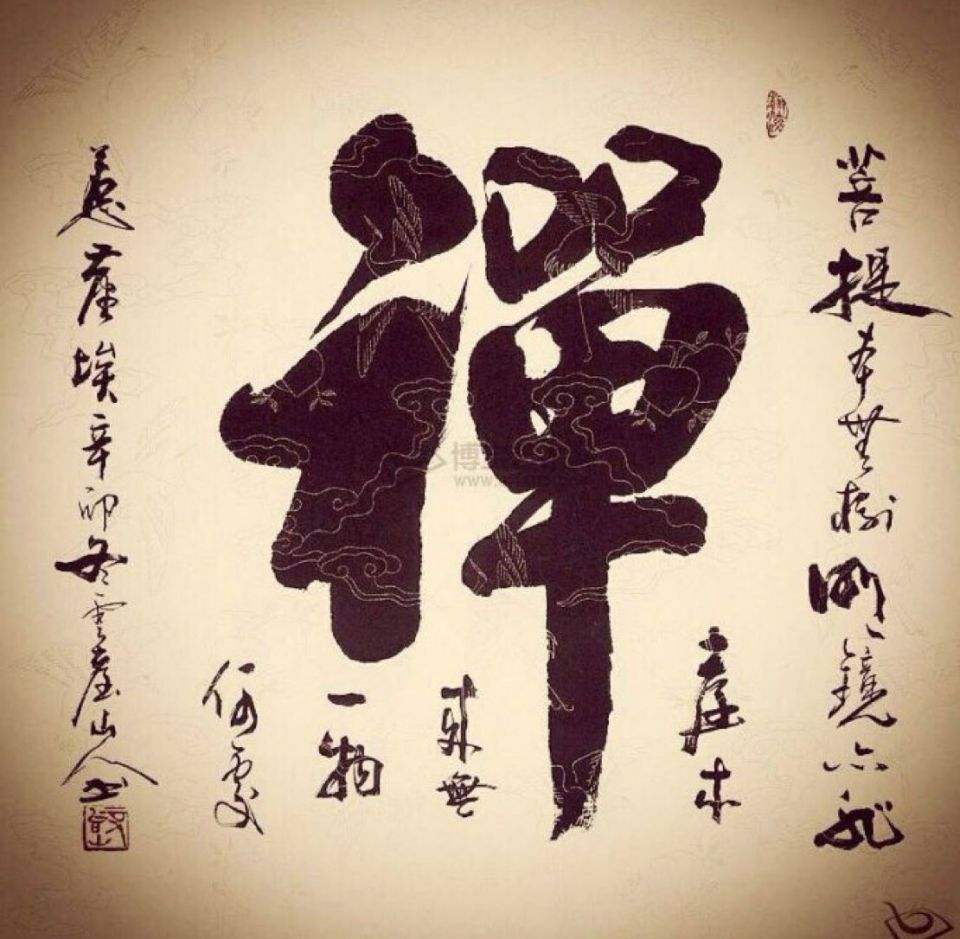 禪
菩提本無樹明鏡亦非
臺本
來無
一物
何處
惹塵埃辛卯冬雲山人書